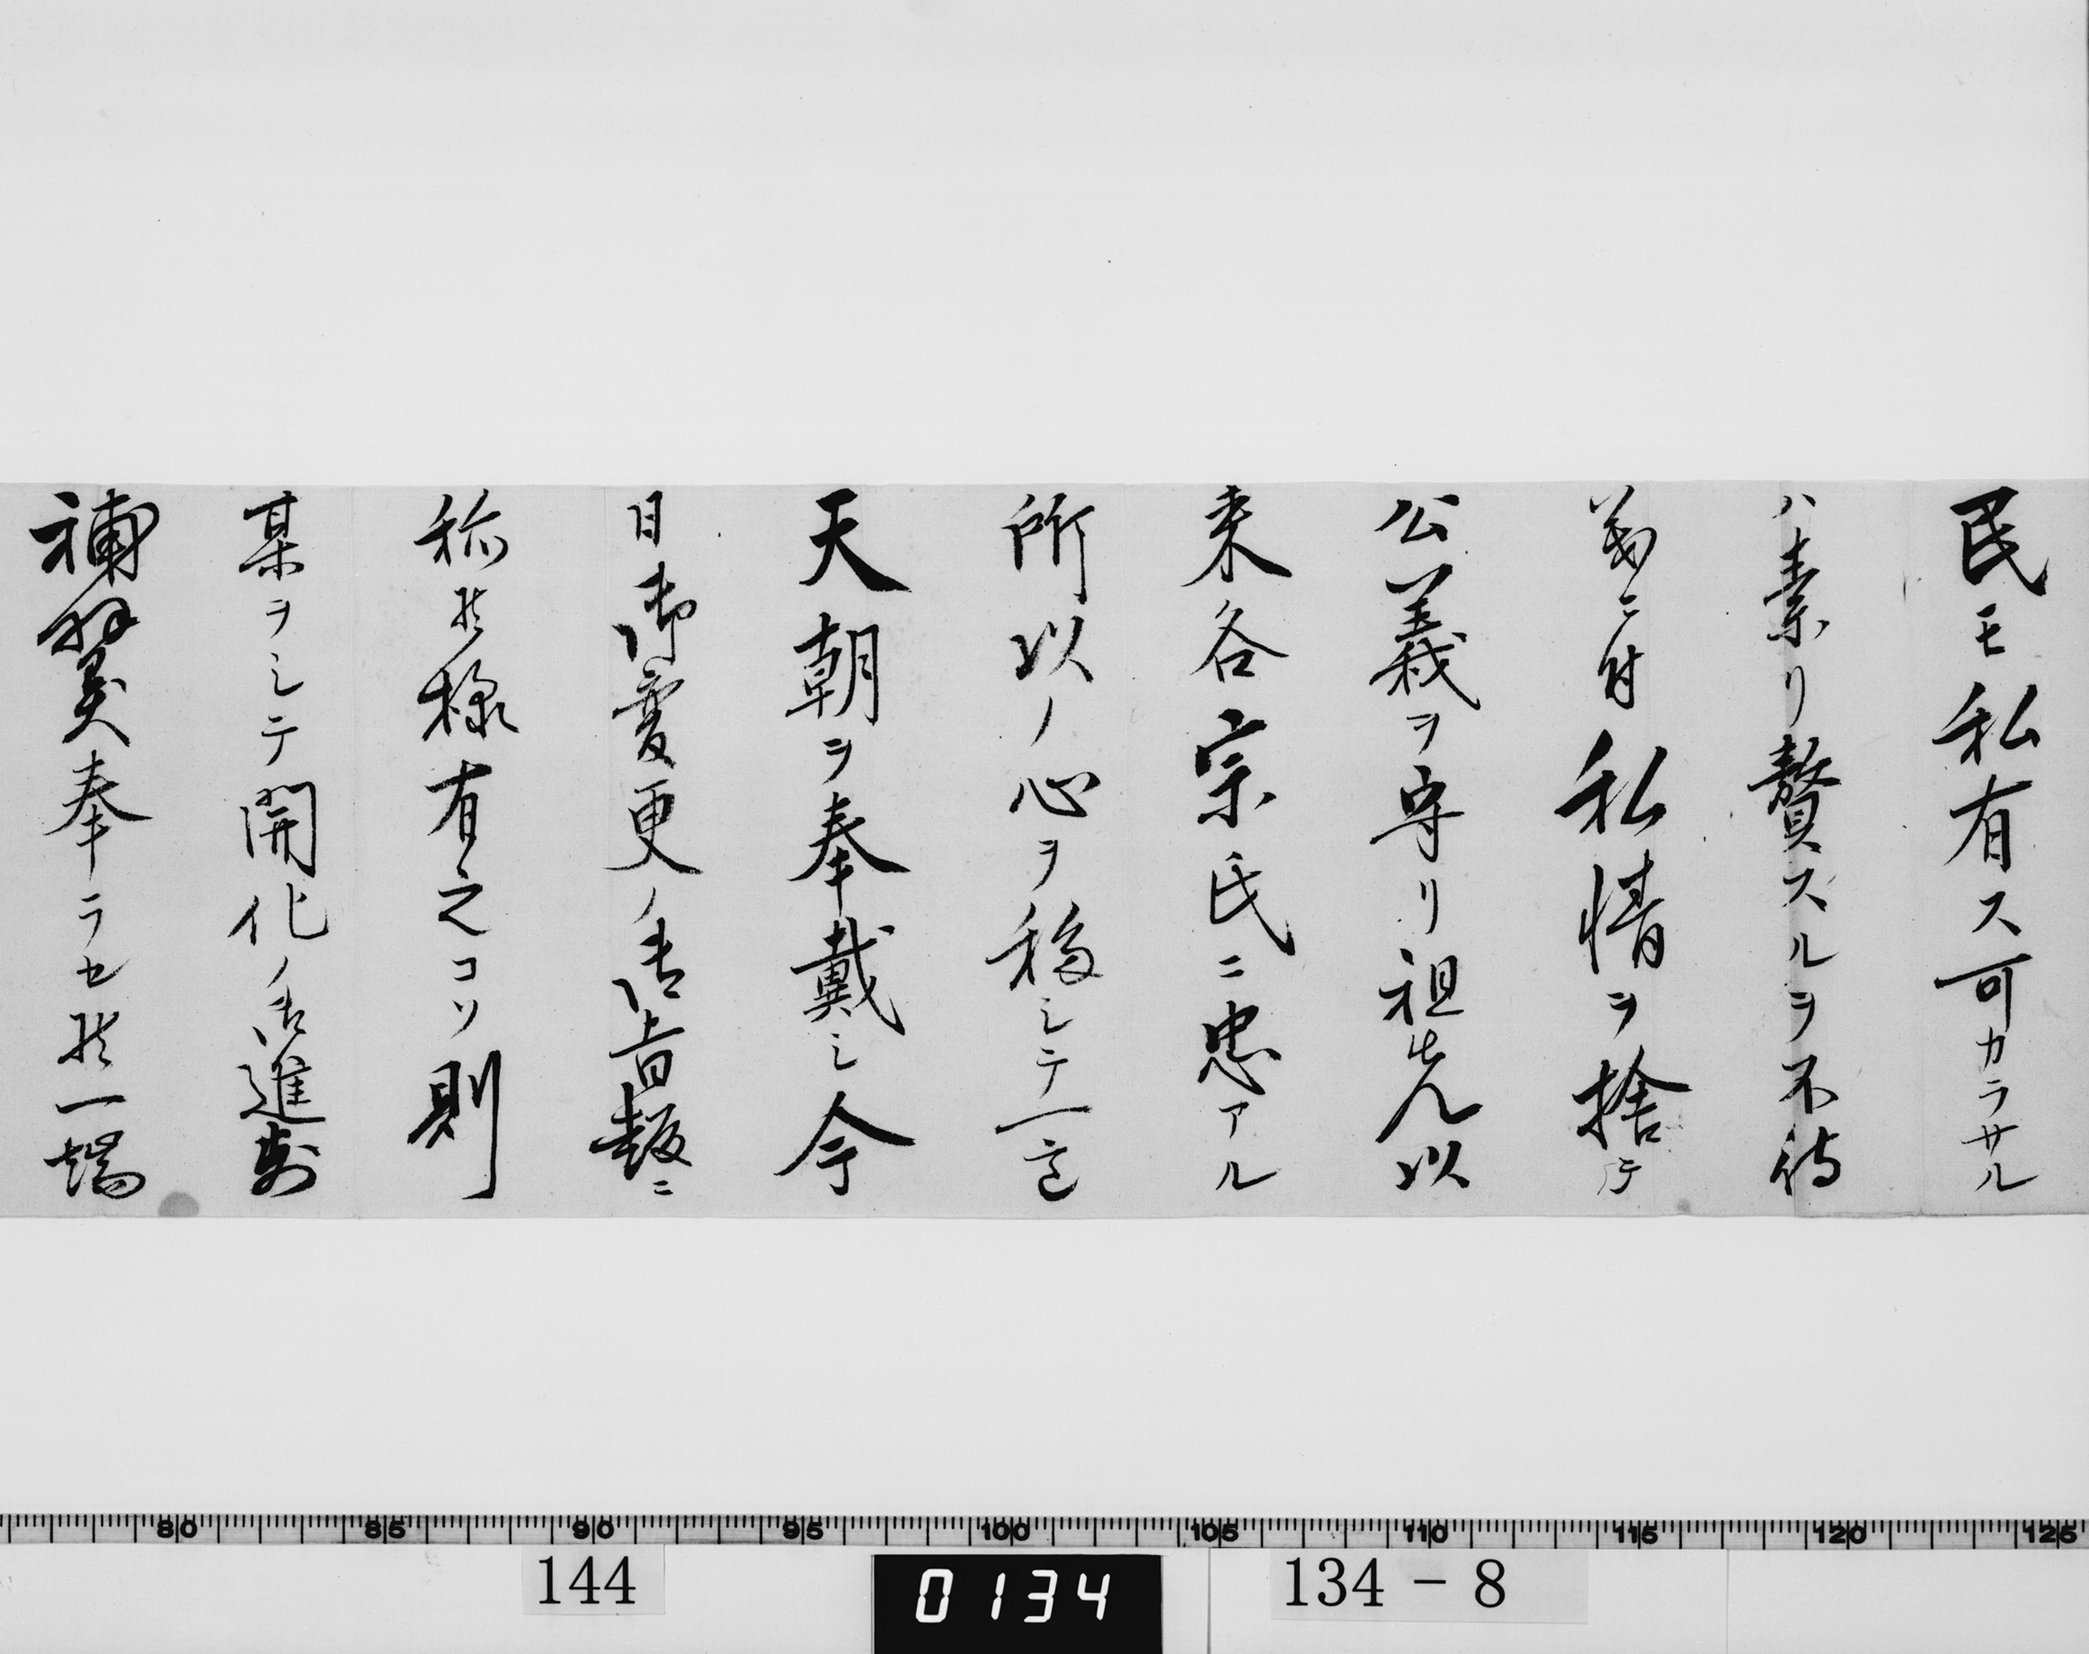 民モ私有ス可カラサル
ハ素リ贅スルヲ不待
義ニ付私情ヲ捨テ
公義ヲ守リ祖先以
来各宗氏ニ忠アル
所以ノ心ヲ移シテ一意
天朝ヲ奉戴シ今
日御変更ノ御旨趣ニ
称ヒ様有之コソ則
某ヲシテ開化ノ御進歩
補翼奉ラセ候一端
80 85 90 95 100 105 110 115 120 125
144 0134 134-8